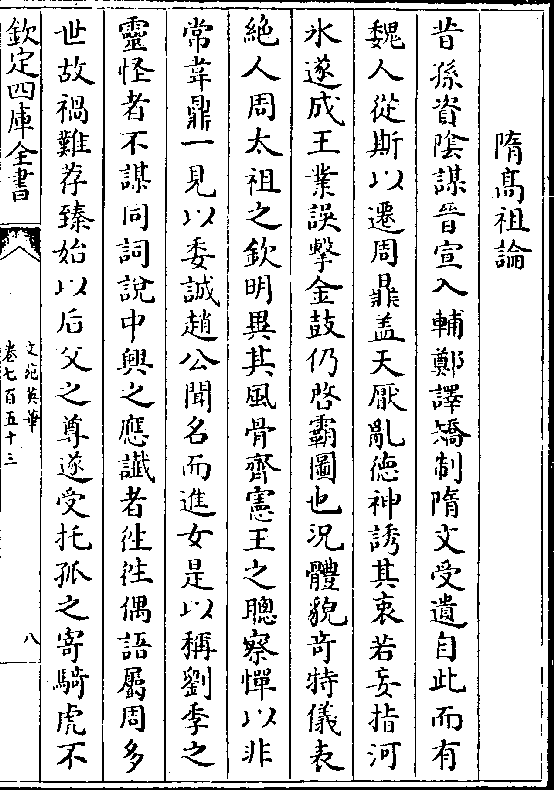 隋髙祖論
昔孫資陰謀晉宣入輔鄭譯矯制隋文受遺自此而有
魏人從斯以遷周鼎盖天厭亂德神誘其衷若妄指河
氷遂成王業誤擊金鼓仍啓霸圖也況體貌竒特儀表
絶人周太祖之欽明異其風骨齊憲王之聰察憚以非
常韋鼎一見以委誠趙公聞名而進女是以稱劉季之
靈怪者不謀同詞說中興之應䜟者往往偶語屬周多
世故禍難荐臻始以后父之尊遂受托孤之寄騎虎不
欽定四庫全書
文苑英華
卷七百五十三
八